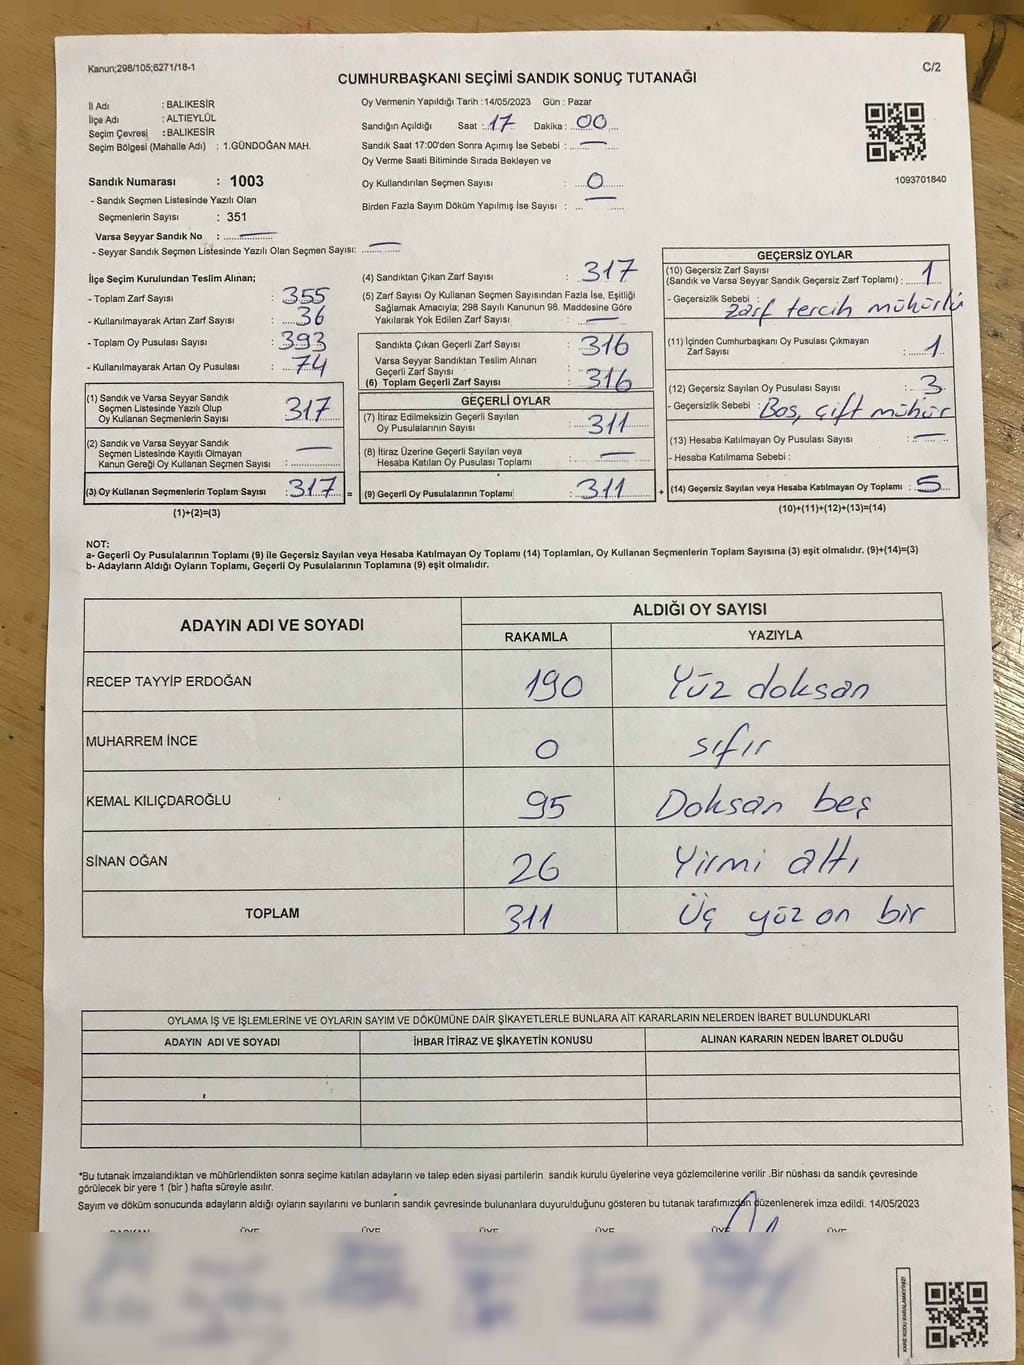 Kanun;298/105;6271/18-1
C/2
CUMHURBAŞKANI SEÇİMİ SANDIK SONUÇ TUTANAĞI
İl Adı : BALIKESİR
İlçe Adı : ALTIEYLÜL
Seçim Çevresi : BALIKESİR
Seçim Bölgesi (Mahalle Adı) : 1.GÜNDOĞAN MAH.
Sandık Numarası : 1003
- Sandık Seçmen Listesinde Yazılı Olan
Seçmenlerin Sayısı : 351
Varsa Seyyar Sandık No : —
- Seyyar Sandık Seçmen Listesinde Yazılı Olan Seçmen Sayısı: —
Oy Vermenin Yapıldığı Tarih : 14/05/2023 Gün : Pazar
Sandığın Açıldığı Saat : 17 Dakika : 00
Sandık Saat 17:00'den Sonra Açımış İse Sebebi : —
Oy Verme Saati Bitiminde Sırada Bekleyen ve
Oy Kullandırılan Seçmen Sayısı : 0
Birden Fazla Sayım Döküm Yapılmış İse Sayısı : —
1093701840
İlçe Seçim Kurulundan Teslim Alınan;
- Toplam Zarf Sayısı : 355
- Kullanılmayarak Artan Zarf Sayısı : 36
- Toplam Oy Pusulası Sayısı : 393
- Kullanılmayarak Artan Oy Pusulası : 74
(1) Sandık ve Varsa Seyyar Sandık
Seçmen Listesinde Yazılı Olup
Oy Kullanan Seçmenlerin Sayısı : 317
(2) Sandık ve Varsa Seyyar Sandık
Seçmen Listesinde Kayıtlı Olmayan
Kanun Gereği Oy Kullanan Seçmen Sayısı : —
(3) Oy Kullanan Seçmenlerin Toplam Sayısı : 317 =
(1)+(2)=(3)
(4) Sandıktan Çıkan Zarf Sayısı : 317
(5) Zarf Sayısı Oy Kullanan Seçmen Sayısından Fazla İse, Eşitliği
Sağlamak Amacıyla; 298 Sayılı Kanunun 98. Maddesine Göre
Yakılarak Yok Edilen Zarf Sayısı : —
Sandıkta Çıkan Geçerli Zarf Sayısı : 316
Varsa Seyyar Sandıktan Teslim Alınan
Geçerli Zarf Sayısı :
(6) Toplam Geçerli Zarf Sayısı : 316
GEÇERLİ OYLAR
(7) İtiraz Edilmeksizin Geçerli Sayılan
Oy Pusulalarının Sayısı : 311
(8) İtiraz Üzerine Geçerli Sayılan veya
Hesaba Katılan Oy Pusulası Toplamı : —
(9) Geçerli Oy Pusulalarının Toplamı : 311 +
GEÇERSİZ OYLAR
(10) Geçersiz Zarf Sayısı
(Sandık ve Varsa Seyyar Sandık Geçersiz Zarf Toplamı) : 1
- Geçersizlik Sebebi : Zarf tercih mühürlü
(11) İçinden Cumhurbaşkanı Oy Pusulası Çıkmayan
Zarf Sayısı : 1
(12) Geçersiz Sayılan Oy Pusulası Sayısı : 3
- Geçersizlik Sebebi : Boş, çift mühür
(13) Hesaba Katılmayan Oy Pusulası Sayısı : —
- Hesaba Katılmama Sebebi :
(14) Geçersiz Sayılan veya Hesaba Katılmayan Oy Toplamı : 5
(10)+(11)+(12)+(13)=(14)
NOT:
a- Geçerli Oy Pusulalarının Toplamı (9) ile Geçersiz Sayılan veya Hesaba Katılmayan Oy Toplamı (14) Toplamları, Oy Kullanan Seçmenlerin Toplam Sayısına (3) eşit olmalıdır. (9)+(14)=(3)
b- Adayların Aldığı Oyların Toplamı, Geçerli Oy Pusulalarının Toplamına (9) eşit olmalıdır.
ADAYIN ADI VE SOYADI ALDIĞI OY SAYISI
RAKAMLA YAZIYLA
RECEP TAYYİP ERDOĞAN 190 Yüz doksan
MUHARREM İNCE 0 sıfır
KEMAL KILIÇDAROĞLU 95 Doksan beş
SİNAN OĞAN 26 Yirmi altı
TOPLAM 311 Üç yüz on bir
OYLAMA İŞ VE İŞLEMLERİNE VE OYLARIN SAYIM VE DÖKÜMÜNE DAİR ŞİKAYETLERLE BUNLARA AİT KARARLARIN NELERDEN İBARET BULUNDUKLARI
ADAYIN ADI VE SOYADI İHBAR İTİRAZ VE ŞİKAYETİN KONUSU ALINAN KARARIN NEDEN İBARET OLDUĞU
*Bu tutanak imzalandıktan ve mühürlendikten sonra seçime katılan adayların ve talep eden siyasi partilerin sandık kurulu üyelerine veya gözlemcilerine verilir .Bir nüshası da sandık çevresinde
görülecek bir yere 1 (bir ) hafta süreyle asılır.
Sayım ve döküm sonucunda adayların aldığı oyların sayılarını ve bunların sandık çevresinde bulunanlara duyurulduğunu gösteren bu tutanak tarafımızdan düzenlenerek imza edildi. 14/05/2023